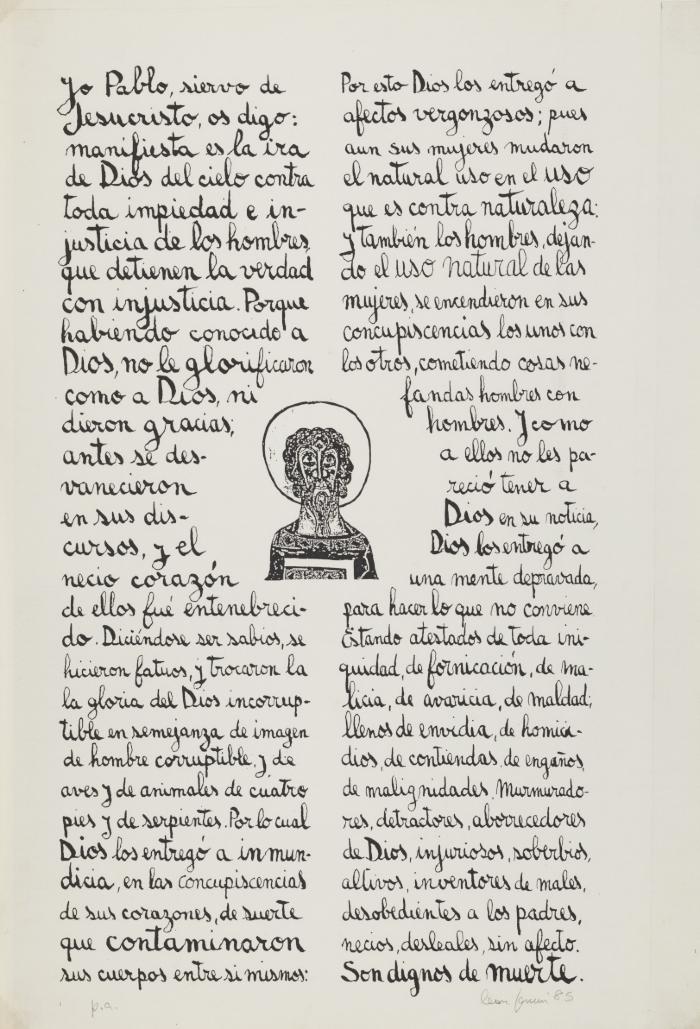 Yo Pablo, siervo de
Jesucristo, os digo:
manifiesta es la ira
de Dios del cielo contra
toda impiedad e in-
justicia de los hombres,
que detienen la verdad
con injusticia. Porque
habiendo conocido a
Dios, no le glorificaron
como a Dios, ni
dieron gracias;
antes se des-
vanecieron
en sus dis-
cursos, y el
necio corazón
de ellos fué entenebreci-
do. Diciéndose ser sabios, se
hicieron fatuos, y trocaron la
la gloria del Dios incorrup-
tible en semejanza de imagen
de hombre corruptible, y de
aves y de animales de cuatro
pies y de serpientes. Por lo cual
Dios los entregó a inmun-
dicia, en las concupiscencias
de sus corazones, de suerte
que contaminaron
sus cuerpos entre si mismos:
Por esto Dios los entregó a
afectos vergonzosos; pues
aun sus mujeres mudaron
el natural uso en el uso
que es contra naturaleza;
y también los hombres, dejan-
do el uso natural de las
mujeres, se encendieron en sus
concupiscencias los unos con
los otros, cometiendo cosas ne-
fandas hombres con
hombres. Y como
a ellos no les pa-
reció tener a
Dios en su noticia,
Dios los entregó a
una mente depravada,
para hacer lo que no conviene.
Estando atestados de toda ini-
quidad, de fornicación, de ma-
licia, de avaricia, de maldad;
llenos de envidia, de homici-
dios, de contiendas, de engaños,
de malignidades. Murmurado-
res, detractores, aborrecedores
de Dios, injuriosos, soberbios,
altivos, inventores de males,
desobedientes a los padres,
necios, desleales, sin afecto.
Son dignos de muerte.
p.a.
león ferrari 85